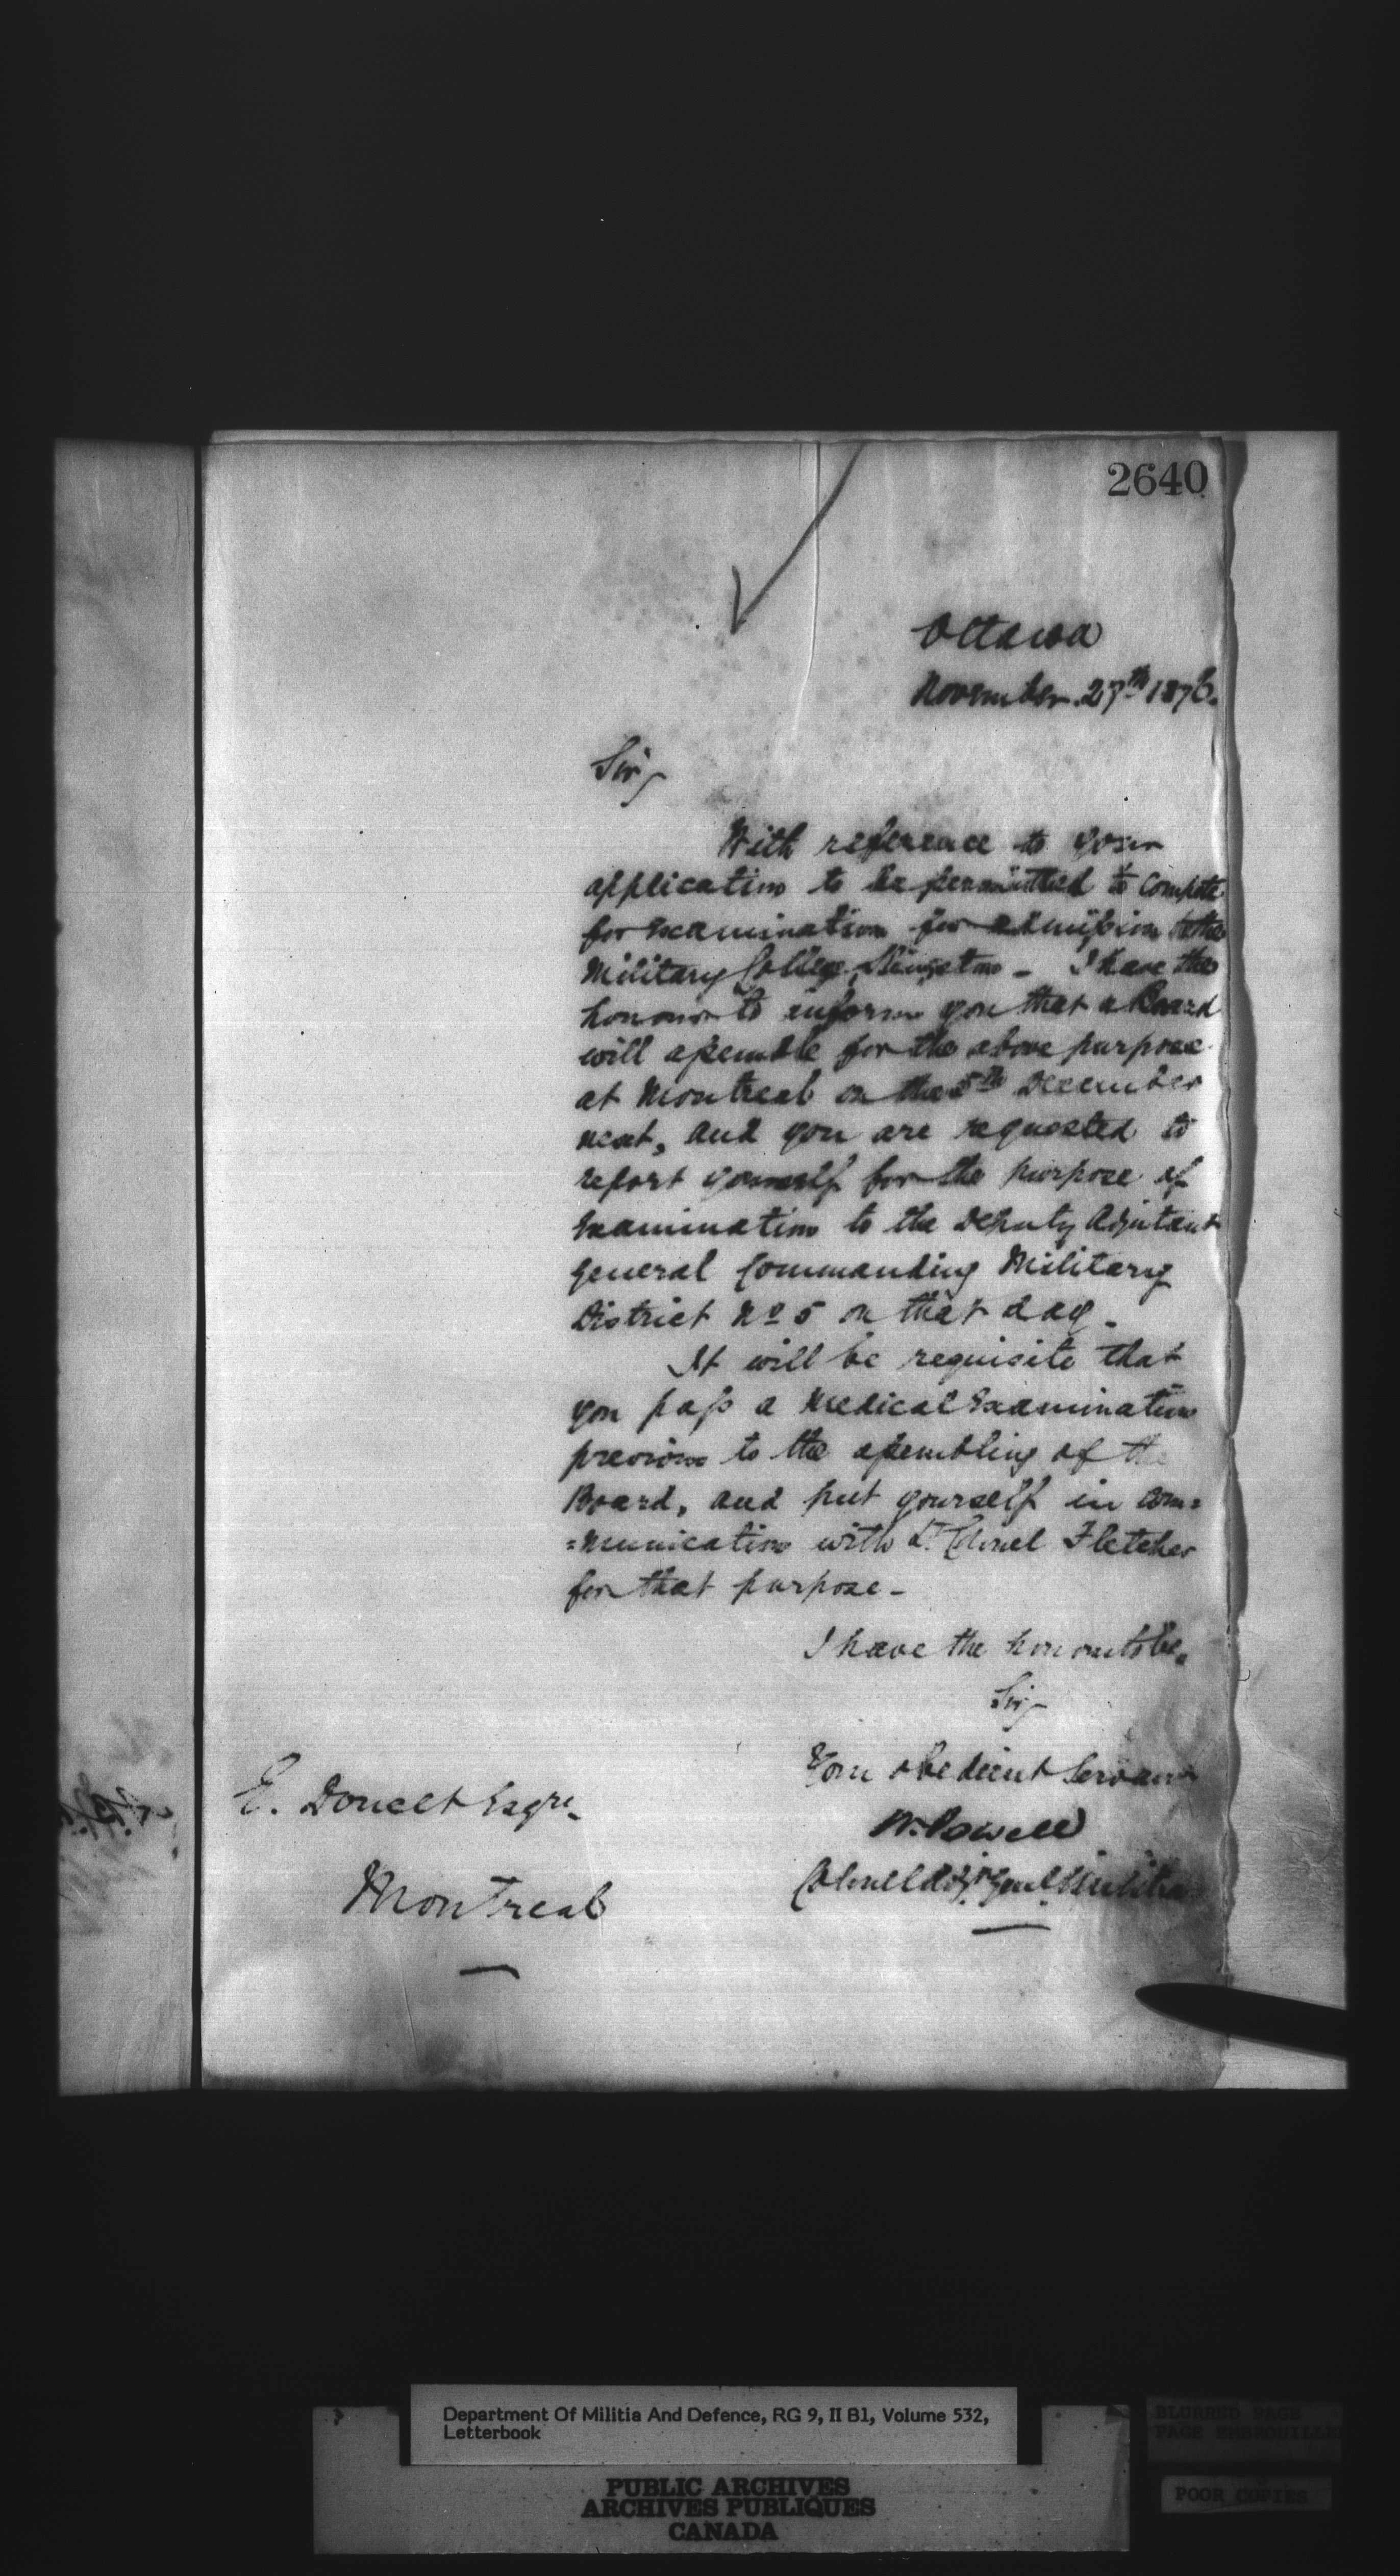 2640
Ottawa
November 27th 1876.
Sir,
With reference to your
application to be permitted to compete
for Examination for admission to the
Military College, Kingston - I have the
honour to inform you that a Board
will assemble for the above purpose
at Montreal on the 5th December
next, and you are requested to
report yourself for the purpose of
Examination to the Deputy Adjutant
General Commanding Military
District No 5 on that day.
It will be requisite that
you pass a Medical Examination
previous to the assembling of the
Board, and put yourself in com=
=munication with Lt. Colonel Fletcher
for that purpose -
I have the honour to be,
Sir,
Your obedient Servant
W. Powell
Colonel Adjt. Genl. Militia
E. Doucet Esqre.
Montreal
Department Of Militia And Defence, RG 9, II B1, Volume 532,
Letterbook
PUBLIC ARCHIVES
ARCHIVES PUBLIQUES
CANADA
BLURRED PAGE
PAGE EMBROUILLE
POOR COPIES